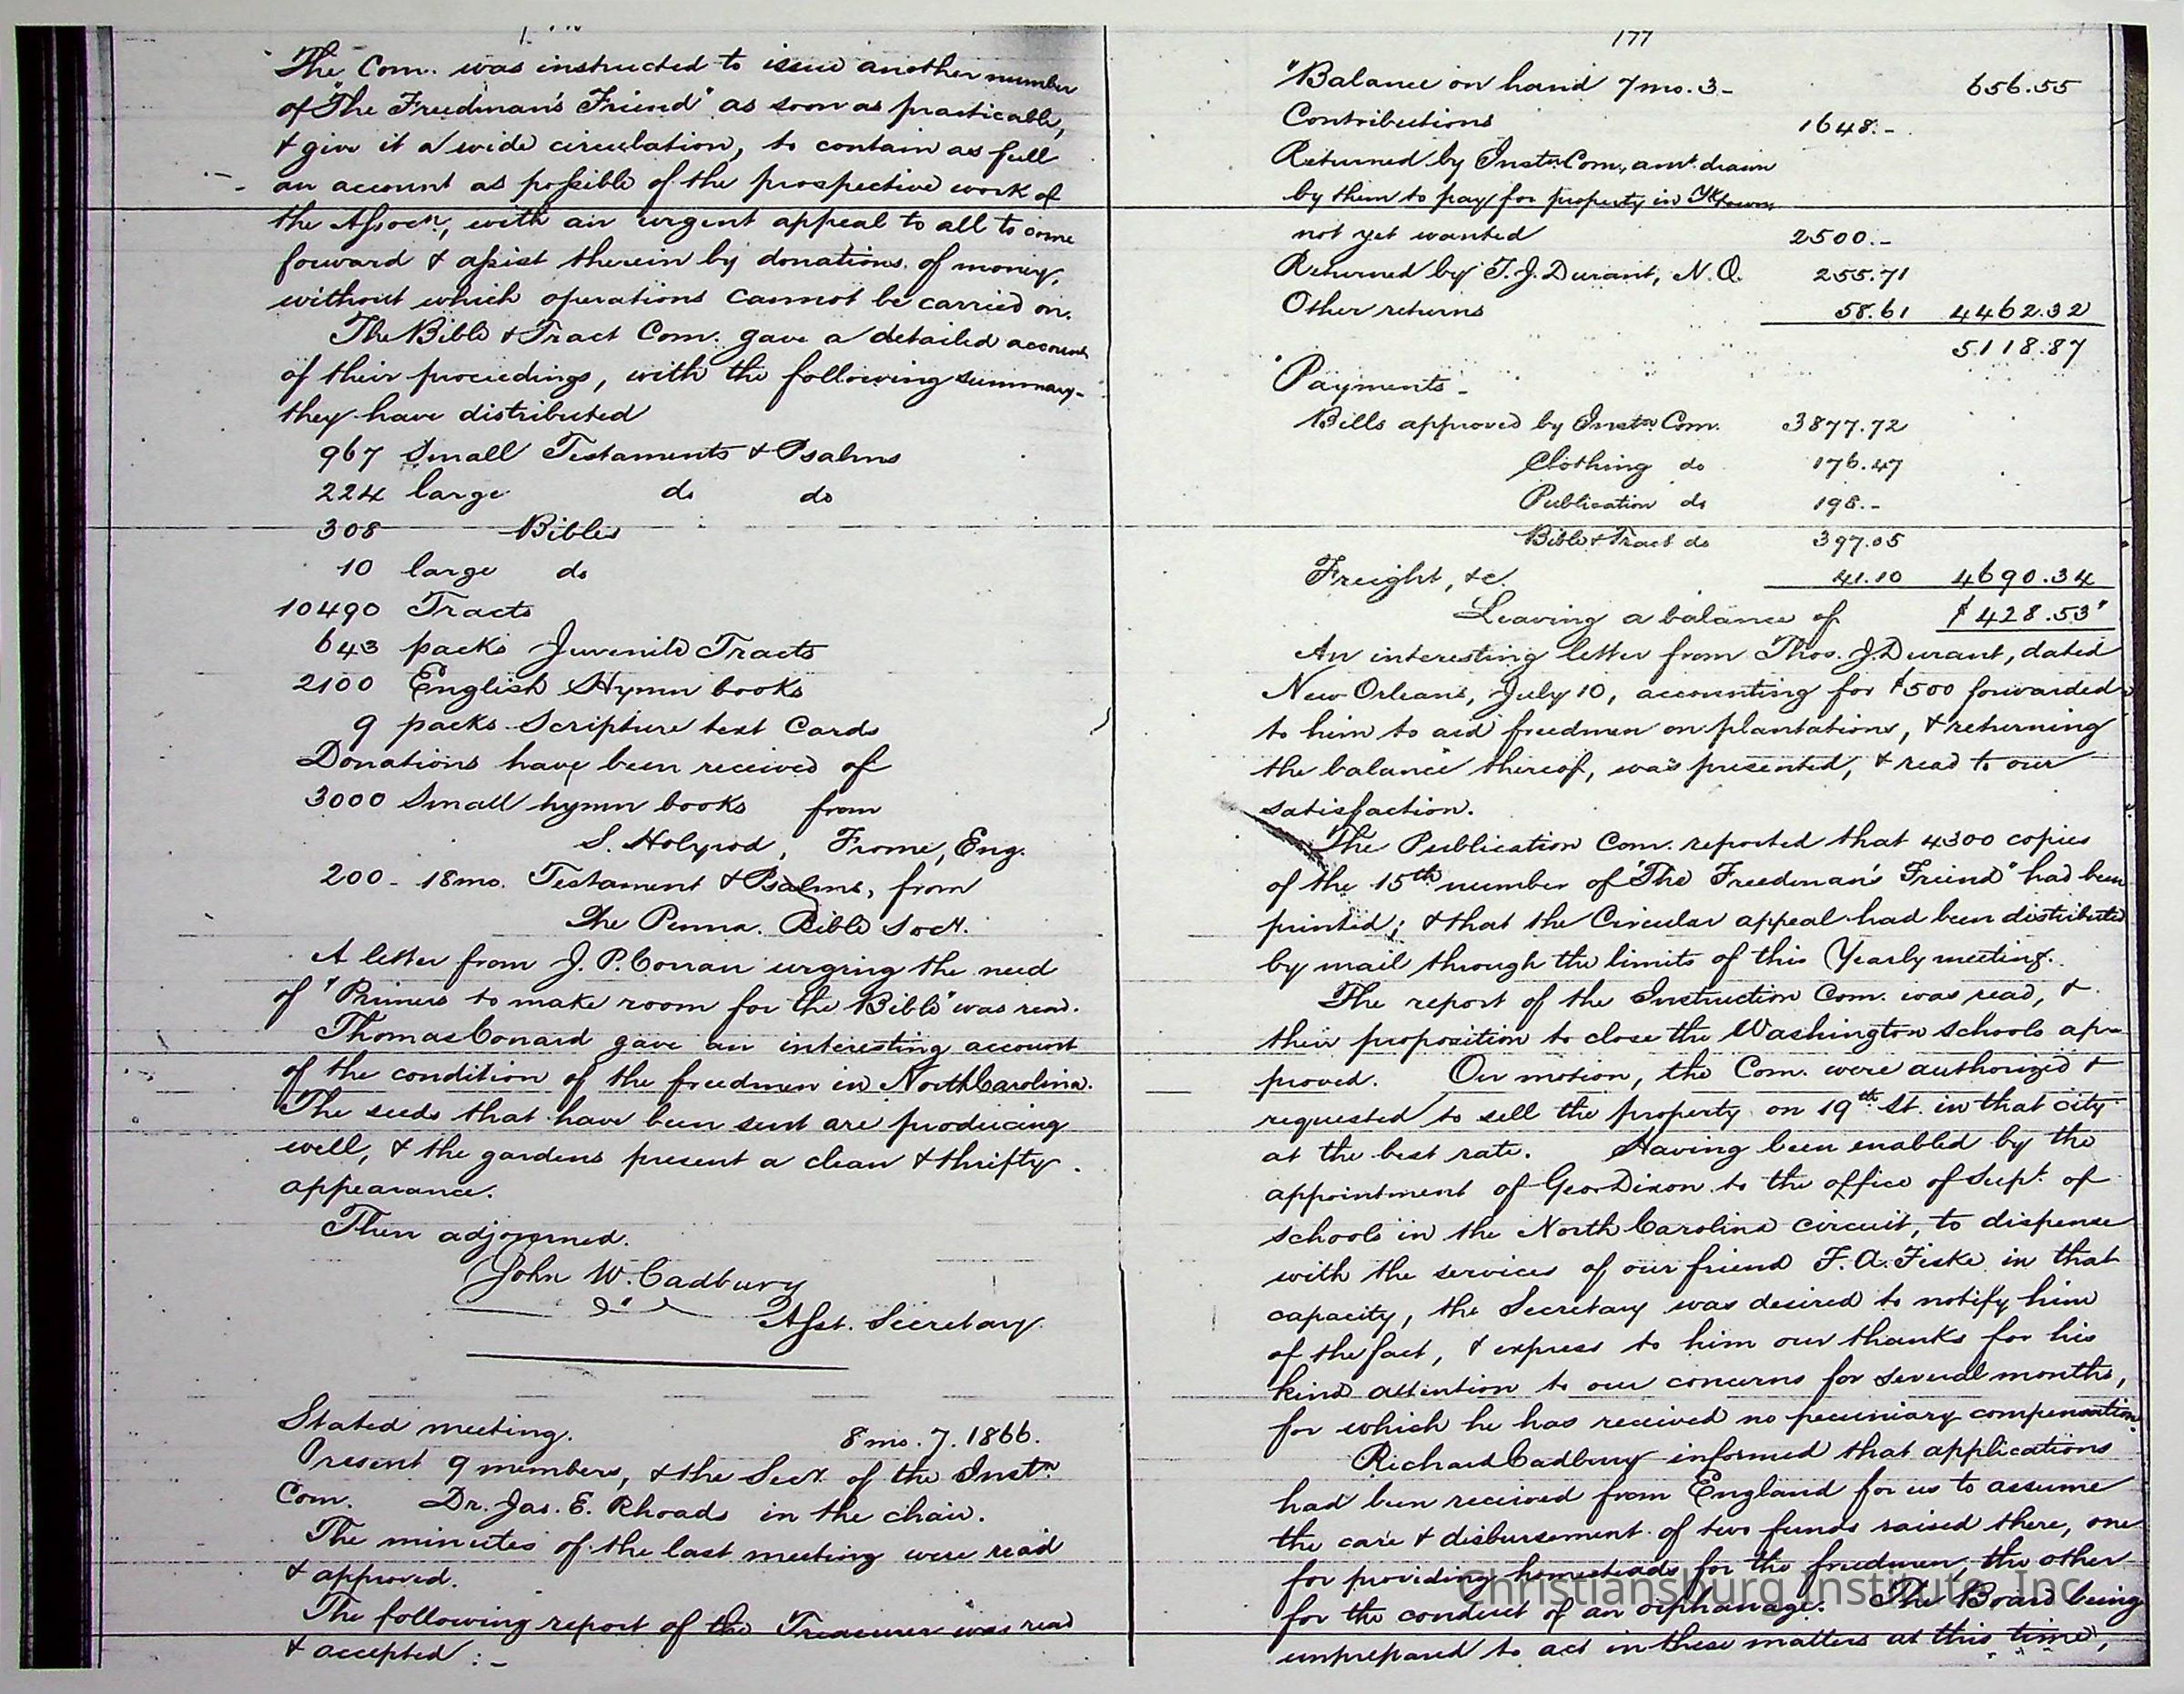 The Com. was instructed to issue another number
of "The Freedman's Friend" as soon as practicable,
& give it a wide circulation, to contain as full
an account as possible of the prospective work of
the Assocn., with an urgent appeal to all to come
forward & assist therein by donations of money,
without which operations cannot be carried on.
The Bible & Tract Com. gave a detailed account
of their proceedings, with the following summary-
they have distributed
967 Small Testaments & Psalms
224 large do do
308 Bibles
10 large do
10490 Tracts
643 packs Juvenile Tracts
2100 English Hymn books
9 packs Scripture text Cards
Donations have been received of
3000 Small hymn books from
S. Holyrod, Frome, Eng.
200 - 18mo. Testament & Psalms, from
The Penna. Bible Socy.
A letter from J. P. Conan urging the need
of "Primers to make room for the Bible" was read.
Thomas Conard gave an interesting account
of the condition of the freedmen in North Carolina.
The seeds that have been sent are producing
well, & the gardens present a clean & thrifty
appearance.
Then adjourned.
John W. Cadbury
Asst. Secretary
Stated meeting. 8 mo. 7. 1866.
Present 9 members, & the Secy. of the Instn
Com. Dr. Jas. E. Rhoads in the chair.
The minutes of the last meeting were read
& approved.
The following report of the Treasurer was read
& accepted :-
177
"Balance on hand 7 mo. 3- 656.55
Contributions 1648.-
Returned by Instn. Com., amt. drawn
by them to pay for property in Yktown,
not yet wanted 2500.-
Returned by T. J. Durant, N.O. 255.71
Other returns 58.61 4462.32
5118.87
Payments -
Bills approved by Instn Com. 3877.72
Clothing do 176.47
Publication do 198.-
Bible & Tract do 397.05
Freight, &c. 41.10 4690.34
Leaving a balance of $428.53"
An interesting letter from Thos. J. Durant, dated
New Orleans, July 10, accounting for $500 forwarded
to him to aid freedmen on plantations, & returning
the balance thereof, was presented, & read to our
satisfaction.
The Publication Com. reported that 4300 copies
of the 15th number of "The Freedman's Friend" had been
printed; & that the Circular appeal had been distributed
by mail through the limits of this Yearly meeting.
The report of the Instruction Com. was read, &
their proposition to close the Washington schools ap-
proved. On motion, the Com. were authorized &
requested to sell the property on 19th St. in that city
at the best rate. Having been enabled by the
appointment of Geo. Dixon to the office of Supt. of
schools in the North Carolina circuit, to dispense
with the services of our friend F. A. Fiske in that
capacity, the Secretary was desired to notify him
of the fact, & express to him our thanks for his
kind attention to our concerns for several months,
for which he has received no pecuniary compensation.
Richard Cadbury informed that applications
had been received from England for us to assume
the care & disbursement of two funds raised there, one
for providing homesteads for the freedmen, the other
for the conduct of an orphanage. The Board being
unprepared to act in these matters at this time,
Christiansburg Institute, Inc.